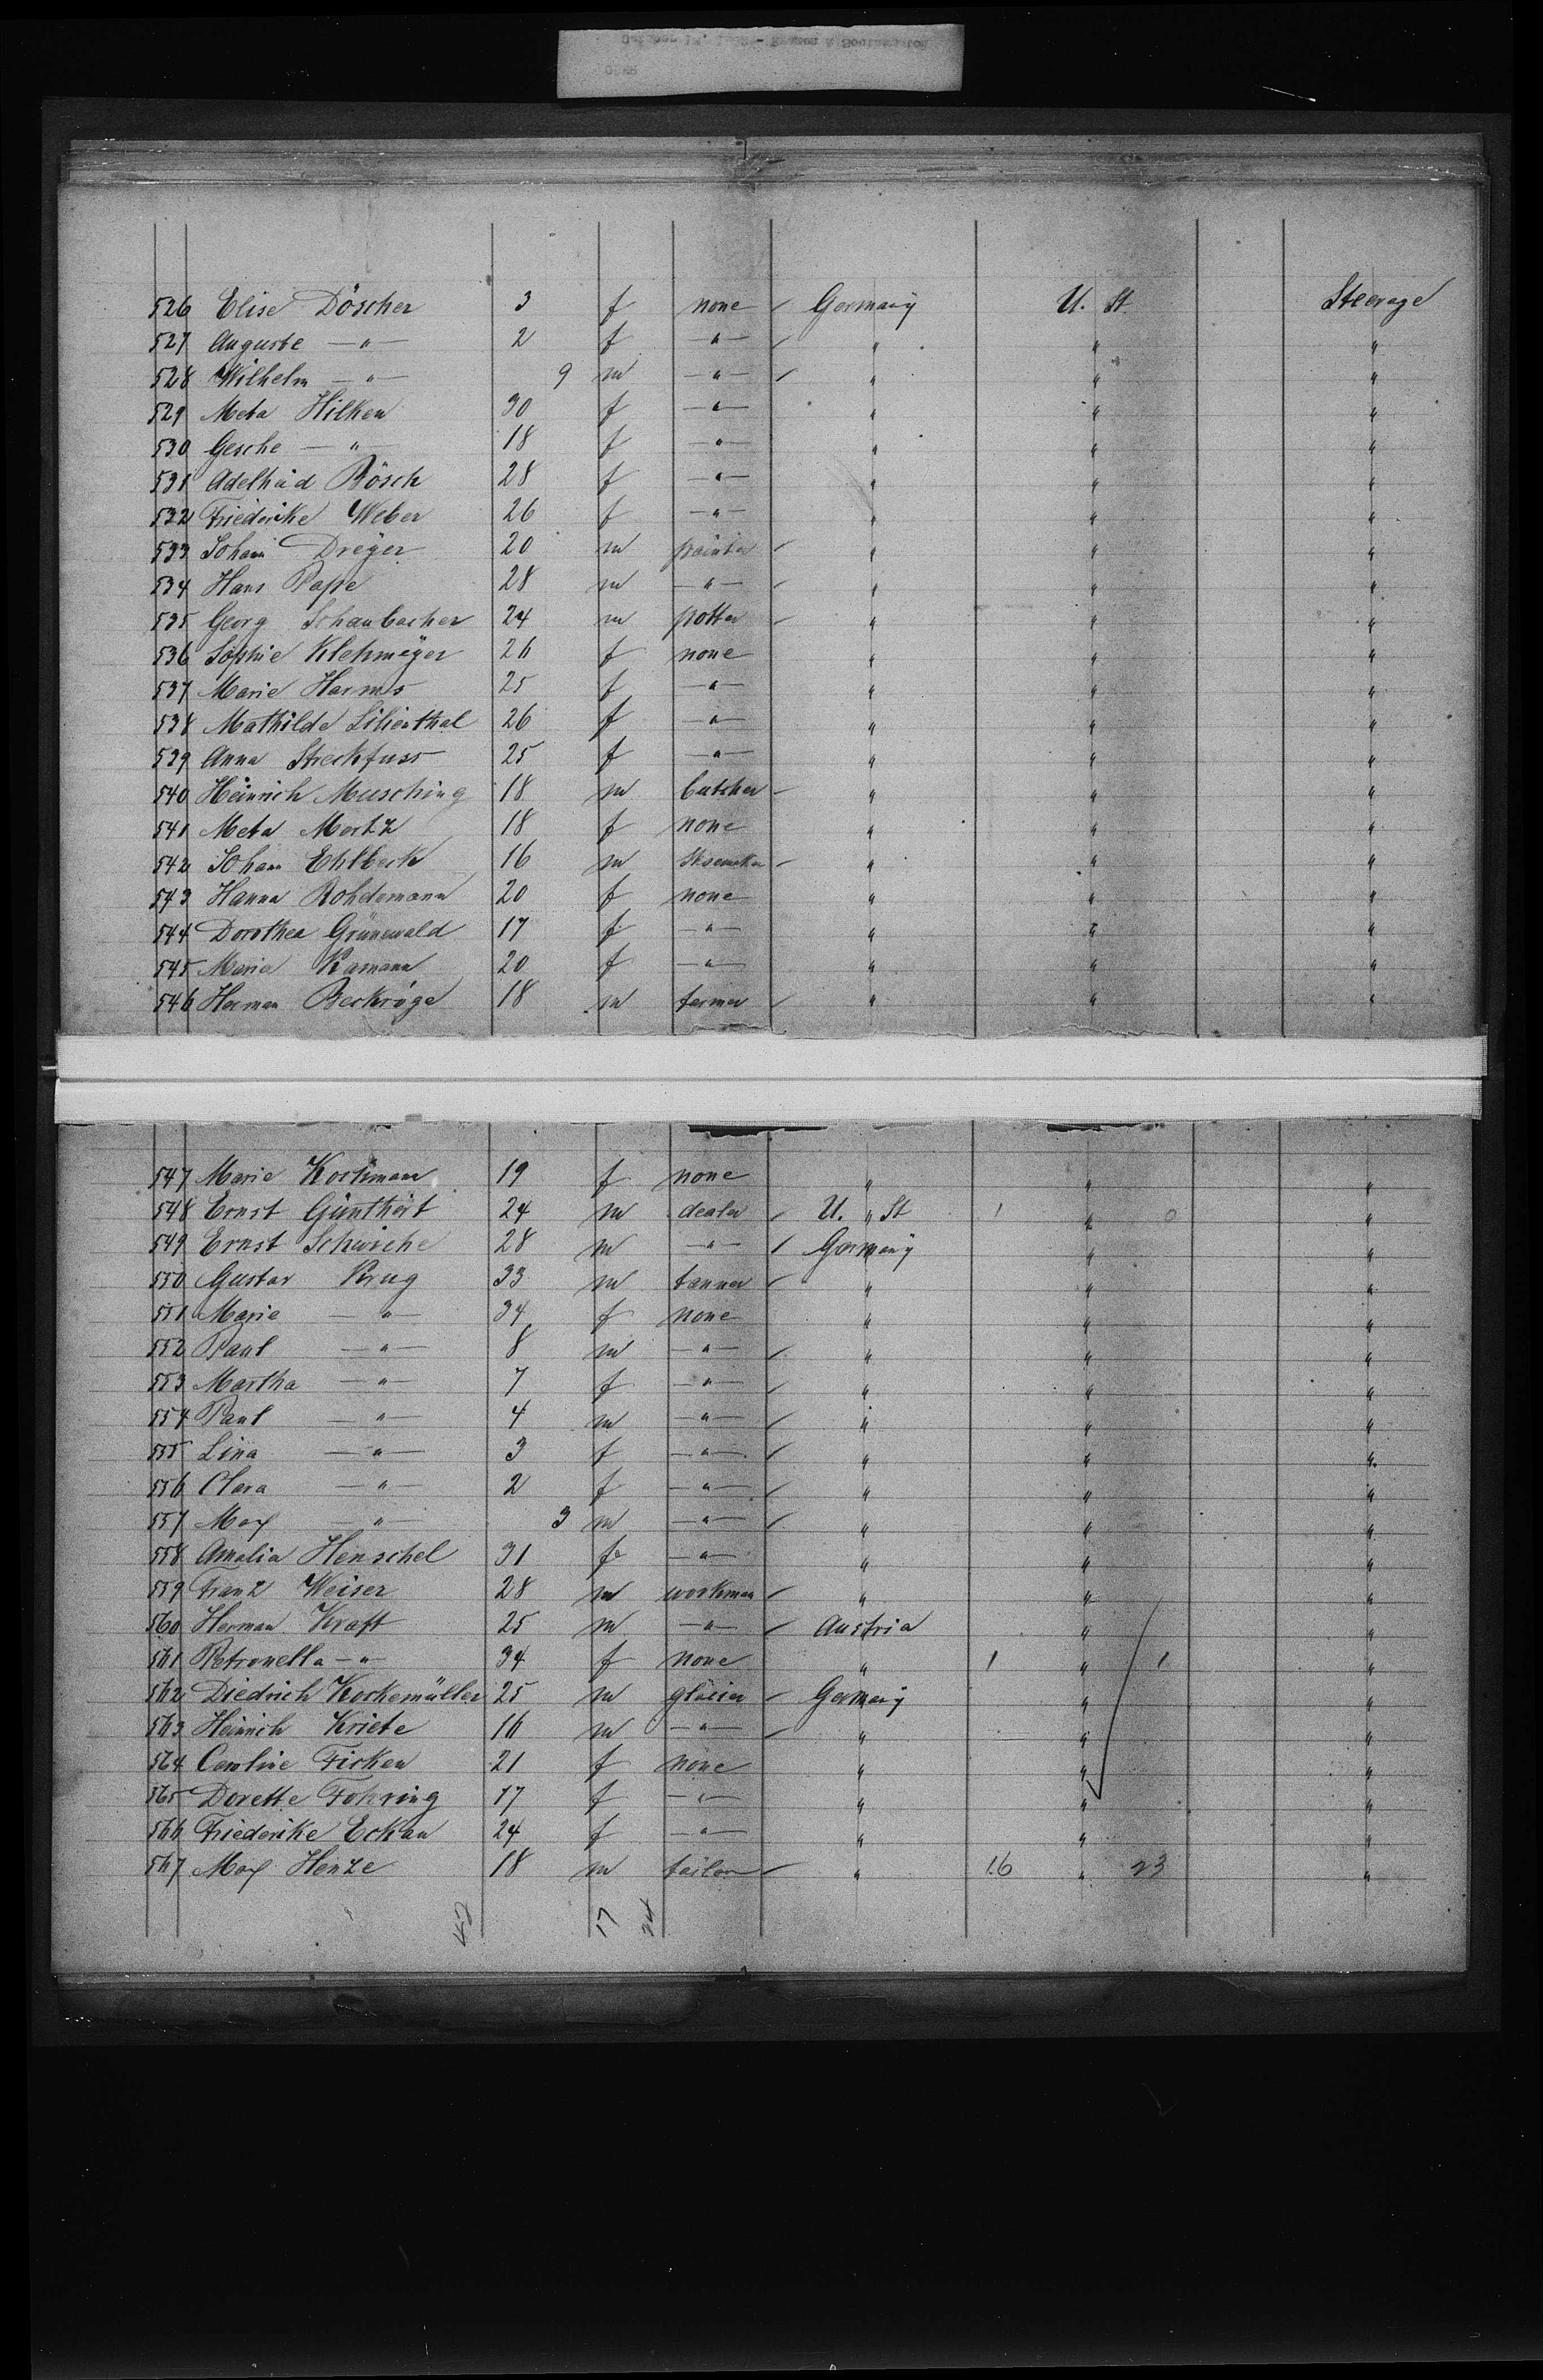 526 Elise Döscher 3 f none Germany U. St. Steerage
527 Auguste — " — 2 f — " — " " "
528 Wilhelm — " — 9 m — " — " " "
529 Meta Hilken 30 f — " — " " "
530 Gesche — " — 18 f — " — " " "
531 Adelheid Bösch 28 f — " — " " "
532 Friederike Weber 26 f — " — " " "
533 Johann Dreÿer 20 m painter " " "
534 Hans Pape 28 m — " — " " "
535 Georg Schaubacher 24 m potter " " "
536 Sophie Klehmeÿer 26 f none " " "
537 Marie Harms 25 f — " — " " "
538 Mathilde Lilienthal 26 f — " — " " "
539 Anna Streckfuss 25 f — " — " " "
540 Heinrich Musching 18 m butcher " " "
541 Meta Mertz 18 f none " " "
542 Johann Ehlbeck 16 m " " "
543 Hanna Rohdemann 20 f none " " "
544 Dorothea Grünewald 17 f — " — " " "
545 Marie Ramann 20 f — " — " " "
546 Herman Beckröge 18 m farmer " " "
547 Marie Kochmann 19 f none " " "
548 Ernst Günthért 24 m dealer U. " St 1 " 0 "
549 Ernst Schwiche 28 m — " — Germanÿ " "
550 Gustav Krug 33 m tanner " " "
551 Marie — " — 34 f none " " "
552 Paul — " — 8 m — " — " " "
553 Martha — " — 7 f — " — " " "
554 Paul — " — 4 m — " — " " "
555 Lina — " — 3 f — " — " " "
556 Clara — " — 2 f — " — " " "
557 Max — " — 3 m — " — " " "
558 Amalia Henschel 31 f — " — " " "
559 Franz Weiser 28 m workman " " "
560 Herman Kraft 25 m — " — Austria " "
561 Petronella — " — 34 f none " 1 " 1 "
562 Diedrich Kockemüller 25 m glacier Germany " "
563 Heinrich Kriete 16 m — " — " " "
564 Caroline Ficken 21 f none " " "
565 Dorette Fohring 17 f — " — " " "
566 Friederike Eckau 24 f — " — " " "
567 Max Henze 18 m tailor " 16 " 23 "
42 17 24